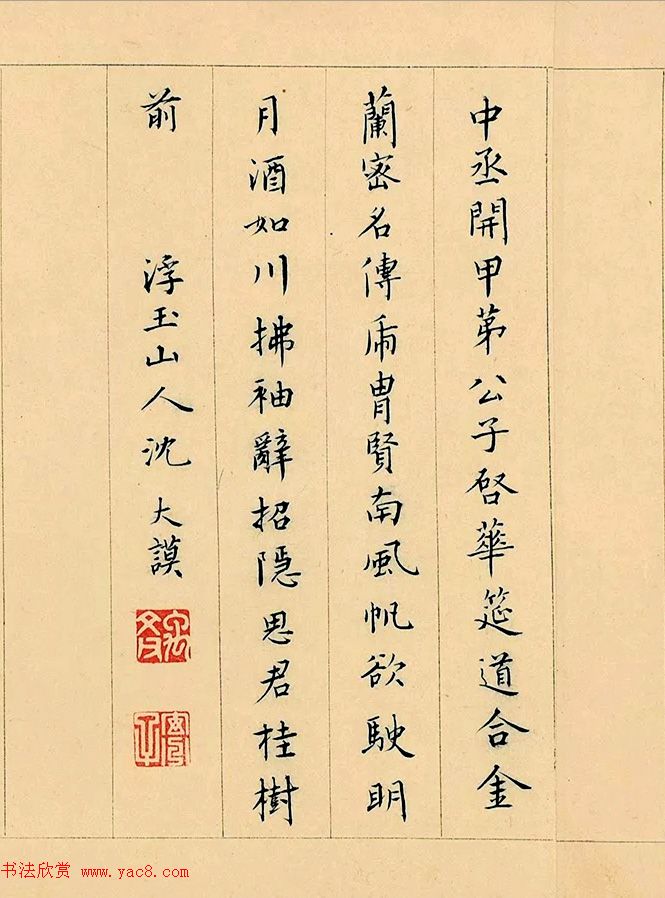 中丞開甲第公子啓華筵道合金
蘭密名傳乕冑賢南風帆欲駛明
月酒如川拂袖辭招隱思君桂樹
前　浮玉山人沈大謨
书法欣赏 www.yac8.com